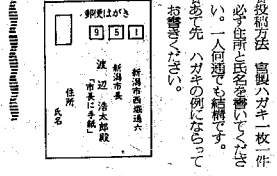 投稿方法　官製ハガキ一枚一件
必ず住所と氏名を書いてくださ
い。一人何通でも結構です。
あて先　ハガキの例にならって
お書きください。
郵便はがき
951
新潟市西堀通六
新潟市長
渡辺浩太郎殿
「市長に手紙」
住所
氏名